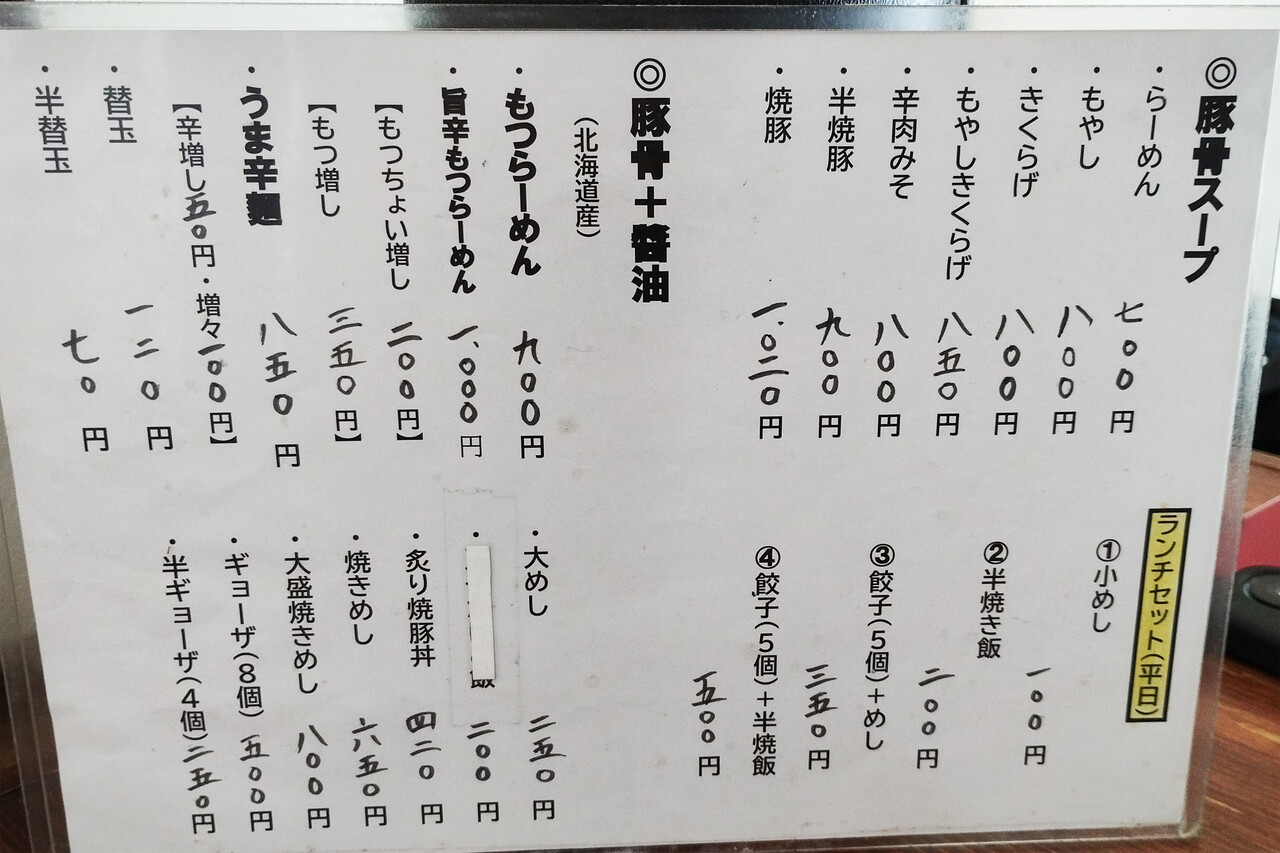 ◎豚骨スープ
・らーめん 七〇〇円
・もやし 八〇〇円
・きくらげ 八〇〇円
・もやしきくらげ 八五〇円
・辛肉みそ 八〇〇円
・半焼豚 九〇〇円
・焼豚 一、〇二〇円
◎豚骨＋醬油
（北海道産）
・もつらーめん 九〇〇円
・旨辛もつらーめん 一、〇〇〇円
【もつちょい増し 二〇〇円】
【もつ増し 三五〇円】
・うま辛麺 八五〇円
【辛増し五〇円・増々一〇〇円】
・替玉 一二〇円
・半替玉 七〇円
ランチセット（平日）
①小めし 一〇〇円
②半焼き飯 二〇〇円
③餃子（５個）＋めし 三五〇円
④餃子（５個）＋半焼飯 五〇〇円
・大めし 二五〇円
・ 飯 二〇〇円
・炙り焼豚丼 四二〇円
・焼きめし 六五〇円
・大盛焼きめし 八〇〇円
・ギョーザ（８個） 五〇〇円
・半ギョーザ（４個） 二五〇円